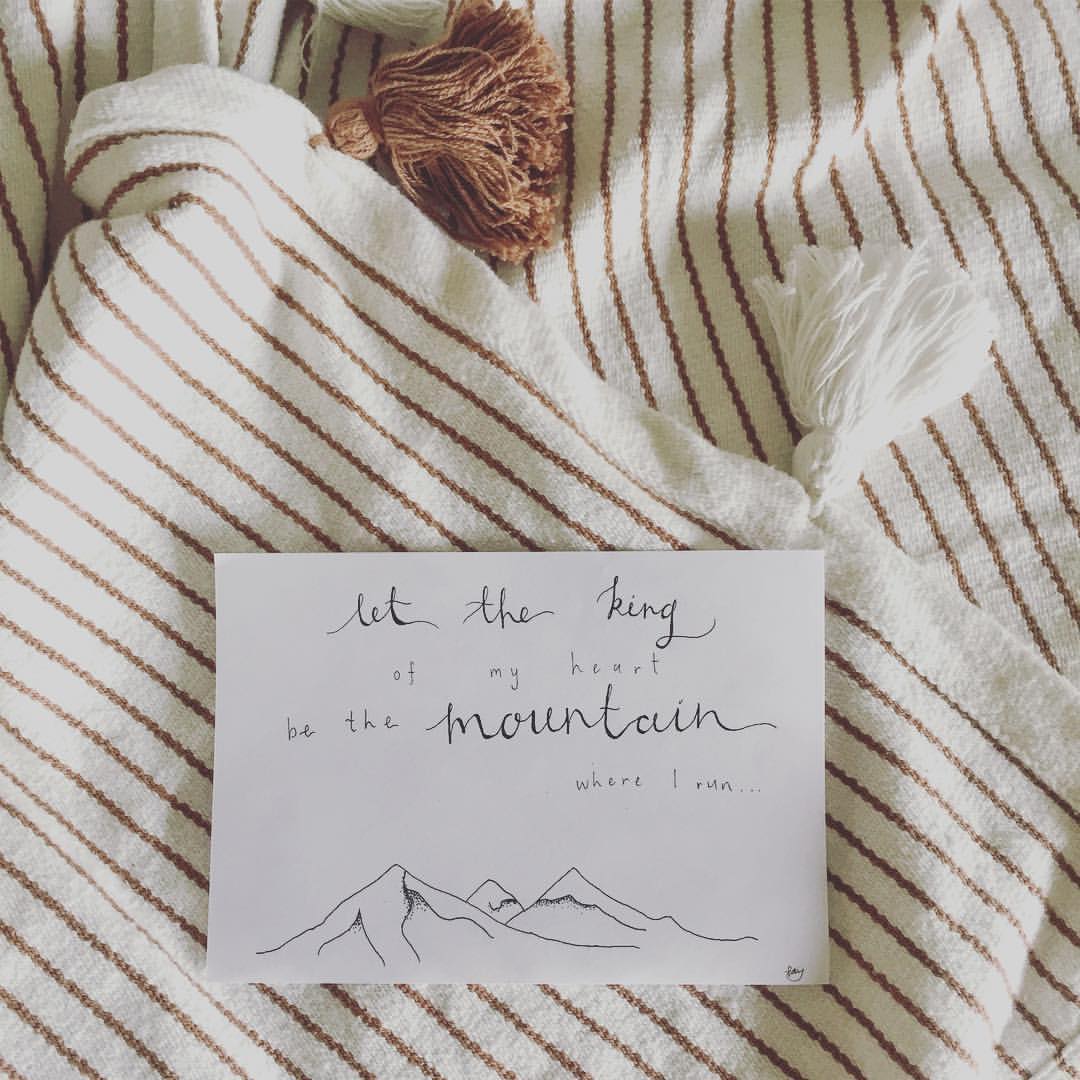 let the king
of my heart
be the mountain
where I run...